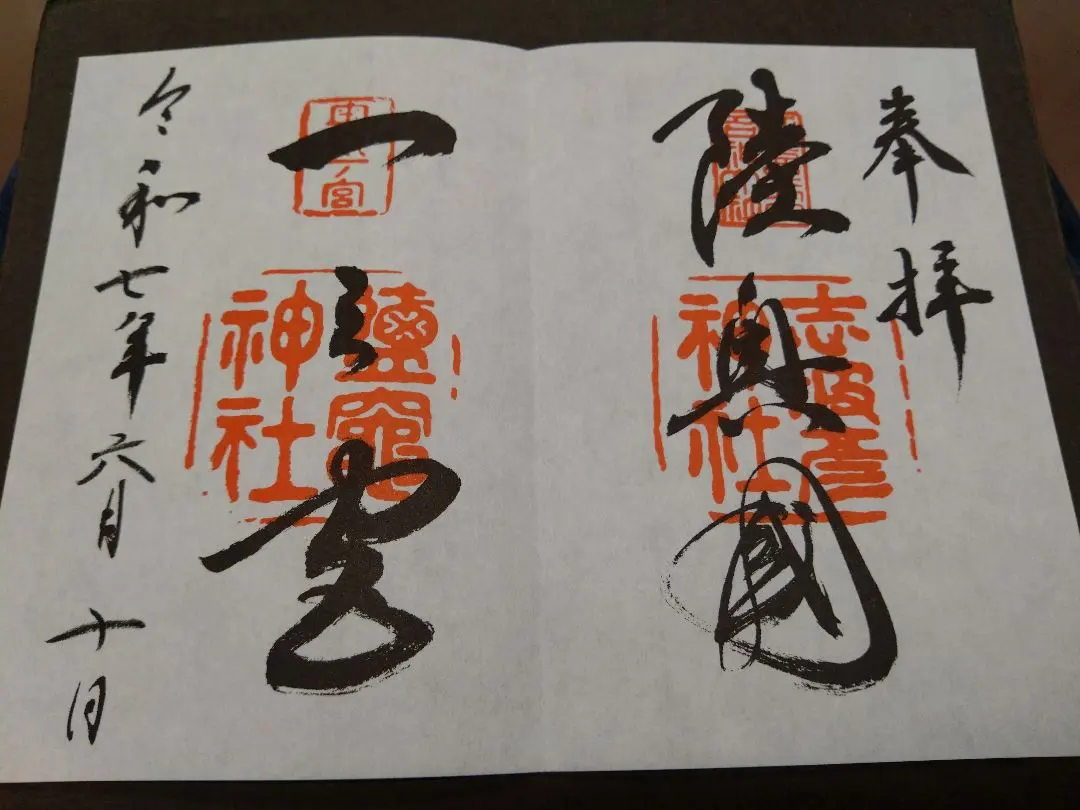 奉拝
陸奥國
志波彦
神社
一之宮
鹽竈
神社
令和七年六月十日